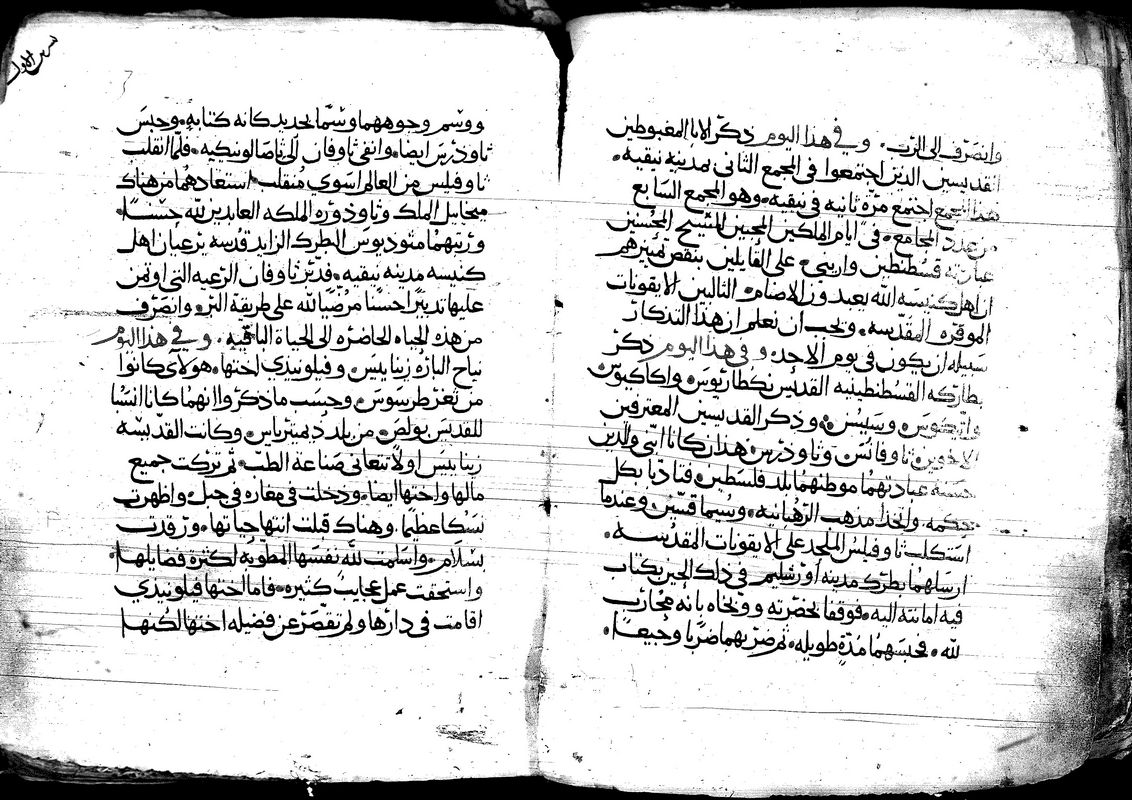 وانصرف الى الرب. وفي هذا اليوم ذكر الابا المغبوطين
القديسين الذين اجتمعوا في المجمع الثاني بمدينة نيقيه.
هذا المجمع اجتمع مرة ثانيه في نيقيه. وهو المجمع السابع
من عدد المجامع. في ايام الملكين المحبين للمسيح المحسنين
عبادته قسطنطين واريني. على القايلين بنقص تمييزهم
ان اهل كنيسة الله يعبدون الاصنام. الثالبين الايقونات
الموقره المقدسه. ويجب أن نعلم ان هذا التذكار
سبيله ان يكون في يوم الاحد. وفي هذا اليوم ذكر
بطاركه القسطنطينيه القديس نكطاريوس واكاكيوس
واتيكوس وسيسينس. وذكر القديسين المعترفين
الاخوين ثاوفانس وثاودرس. هذان كانا ابني والدين
حسنه عبادتهما موطنهما بلد فلسطين. فتادبا بكل
حكمه. واتخذا مذهب الرهبانيه. وسيما قسين. وعندما
استكلب ثاوفيلس الملحد على الايقونات المقدسه.
ارسلهما بطرك مدينه اورشليم في ذلك الحين بكتاب
فيه امانته اليه. فوقفا بحضرته ووبخاه بانه محارب
لله. فحبسهما مدة طويله. ثم ضربهما ضربا وجيعا.
سهر الاول
ووسم وجوههما وسما بحديد كانه كتابه. وحبس
ثاودرس ايضا. وانفى ثاوفان الى ثاصالونيكيه. فلما انقلب
ثاوفيلس من العالم اسوي منقلب. استعادهما من هناك
ميخايل الملك وثاوذوره الملكه العابدين لله حسنا.
ورتبهما مثوديوس البطرك الزايد قدسه يرعيان اهل
كنيسه مدينه نيقيه. فدبر ثاوفان الرعيه التي اوتمن
عليها تدبيرا حسنا مرضيا لله على طريقة البر. وانصرف
من هذه الحياه الحاضره الى الحياة الباقيه. وفي هذا اليوم
نياح الباره زينايس وفيلونيذي اختها. هولاي كانوا
من ثغر طرسوس. وحسب ما ذكروا انهما كانا انسبا
للقديس بولص. من بلد ديمترياس. وكانت القديسه
زينايس اولا تتعانى صناعة الطب. ثم تركت جميع
مالها واختها ايضا. ودخلت في مغاره في جبل. واظهرت
نسكا عظيما. وهناك قبلت انتها حياتها. ورقدت
بسلام. واسلمت لله نفسها المطوبه لكثرة فضايلها
واستحقت عمل عجايب كثيره. فاما اختها فيلونيذي
اقامت في دارها ولم تقصر عن فضيله اختها لكنها